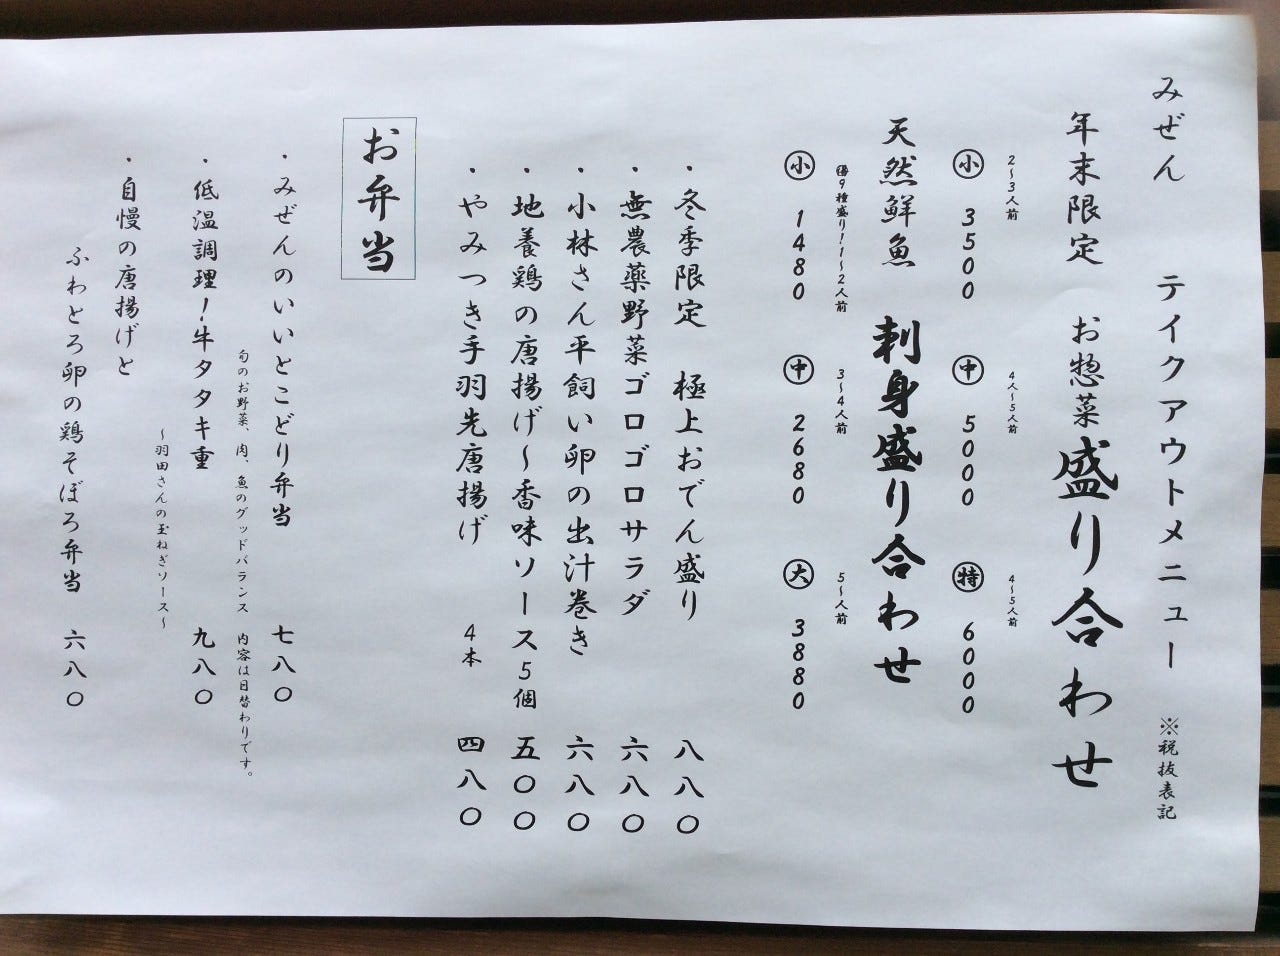 みぜん　テイクアウトメニュー　※税抜表記
年末限定　お惣菜盛り合わせ
2~3人前　4人~5人前　4~5人前
㊙小 3500　㊥ 5000　㊕ 6000
天然鮮魚　刺身盛り合わせ
9種盛り!1~2人前　3~4人前　5~人前
小 1480　㊥ 2680　大 3880
・冬季限定　極上おでん盛り　八八〇
・無農薬野菜ゴロゴロサラダ　六八〇
・小林さん平飼い卵の出汁巻き　六八〇
・地養鶏の唐揚げ~香味ソース5個　五〇〇
・やみつき手羽先唐揚げ　4本　四八〇
お弁当
・みぜんのいいとこどり弁当　七八〇
旬のお野菜、肉、魚のグッドバランス　内容は日替わりです。
・低温調理!牛タタキ重　九八〇
~羽田さんの玉ねぎソース~
・自慢の唐揚げと
ふわとろ卵の鶏そぼろ弁当　六八〇